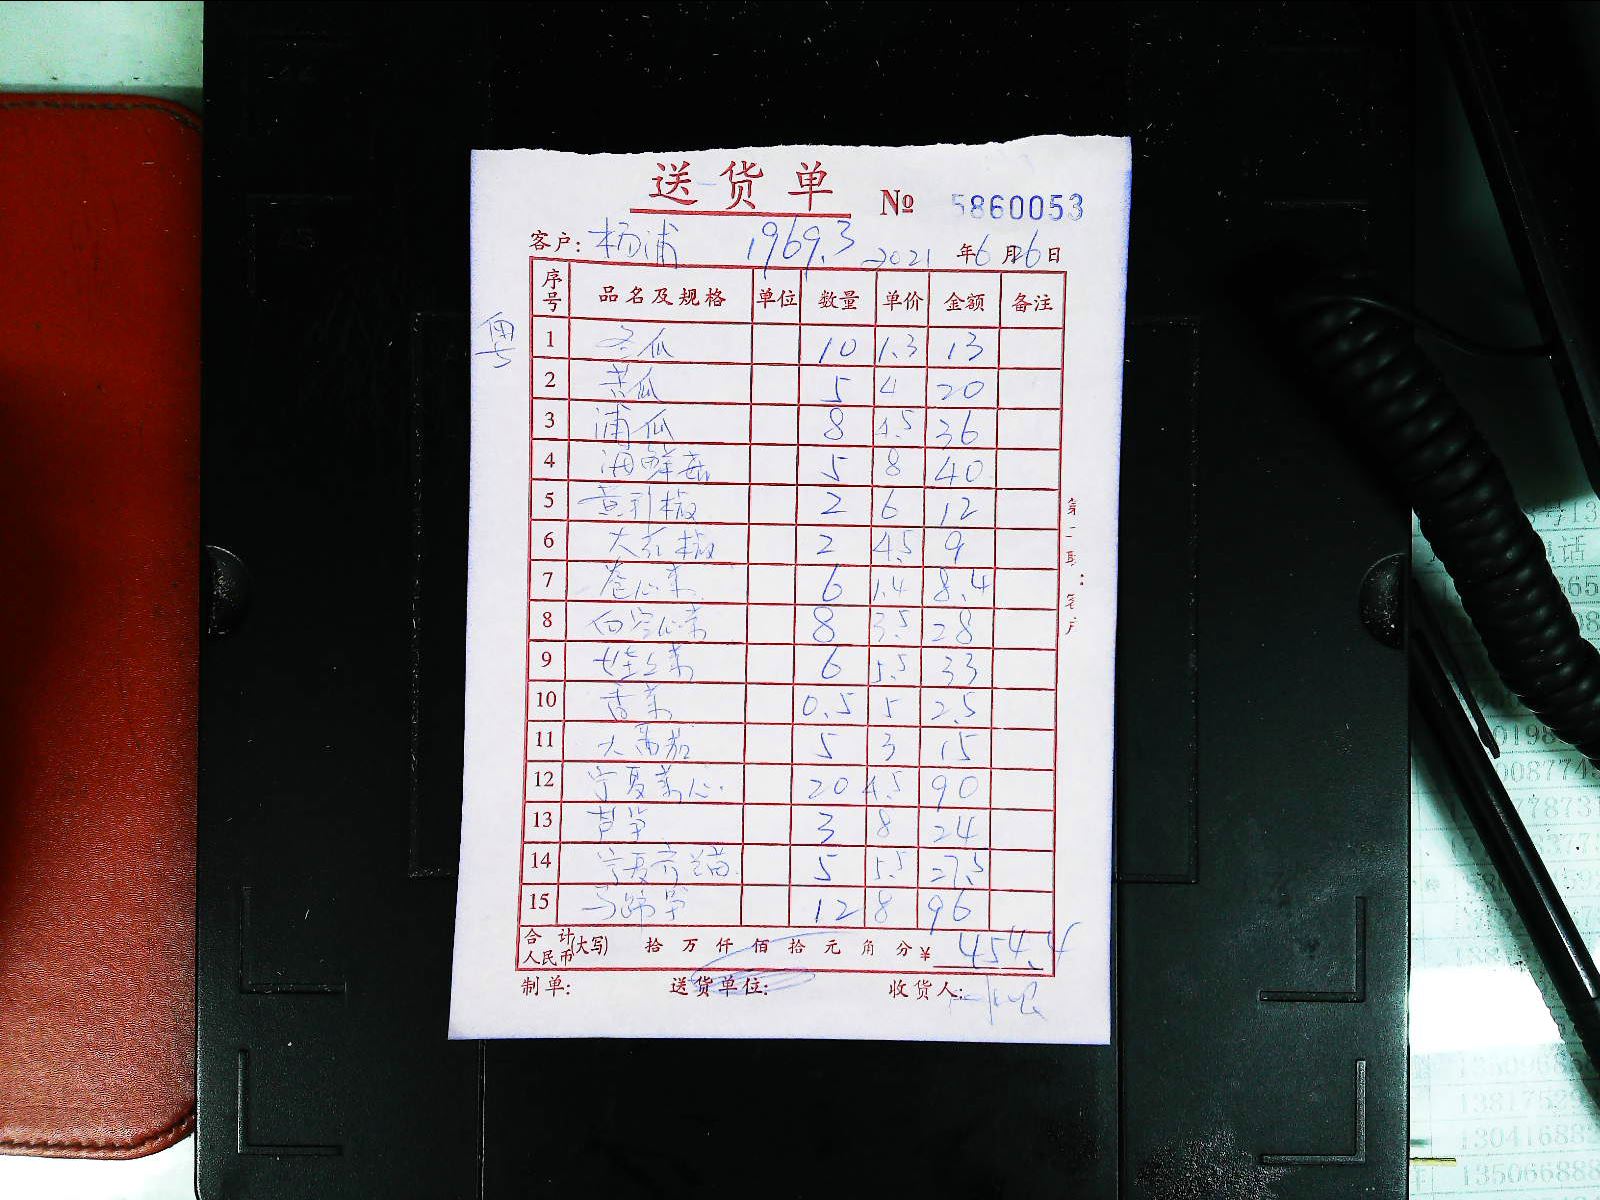 送货单 № 5860053
客户: 杨浦 1969.3 2021 年 6 月 26 日
序号 品名及规格 单位 数量 单价 金额 备注
粤
1 冬瓜 10 1.3 13
2 苦瓜 5 4 20
3 浦瓜 8 4.5 36
4 海鲜菇 5 8 40
5 黄引椒 2 6 12
6 大红椒 2 4.5 9
7 卷心菜 6 1.4 8.4
8 白空心菜 8 3.5 28
9 娃娃菜 6 5.5 33
10 香菜 0.5 5 2.5
11 大番茄 5 3 15
12 宁夏菜心 20 4.5 90
13 芦笋 3 8 24
14 宁夏芥兰苗 5 5.5 27.5
15 马蹄笋 12 8 96
合计人民币(大写) 拾 万 仟 佰 拾 元 角 分 ¥ 454.4
制单: 送货单位: 收货人:
第二联:客户